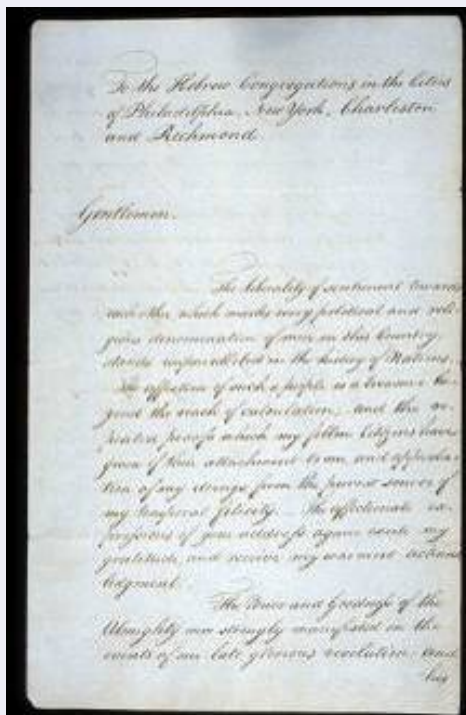 To the Hebrew Congregations in the Cities
of Philadelphia, New York, Charleston
and Richmond.
Gentlemen.
The liberality of sentiment towards
each other which marks every political and reli-
gious denomination of men in this Country
stands unparalleled in the history of Nations.
The affection of such a people is a treasure be-
yond the reach of calculation; and the re-
peated proofs which my fellow Citizens have
given of their attachment to me, and approba-
tion of my doings form the purest source of
my temporal felicity. The affectionate ex-
pressions of your address again excite my
gratitude, and receive my warmest acknow-
ledgment.
The Power and Goodness of the
Almighty were strongly manifested in the
events of our late glorious revolution; and
his